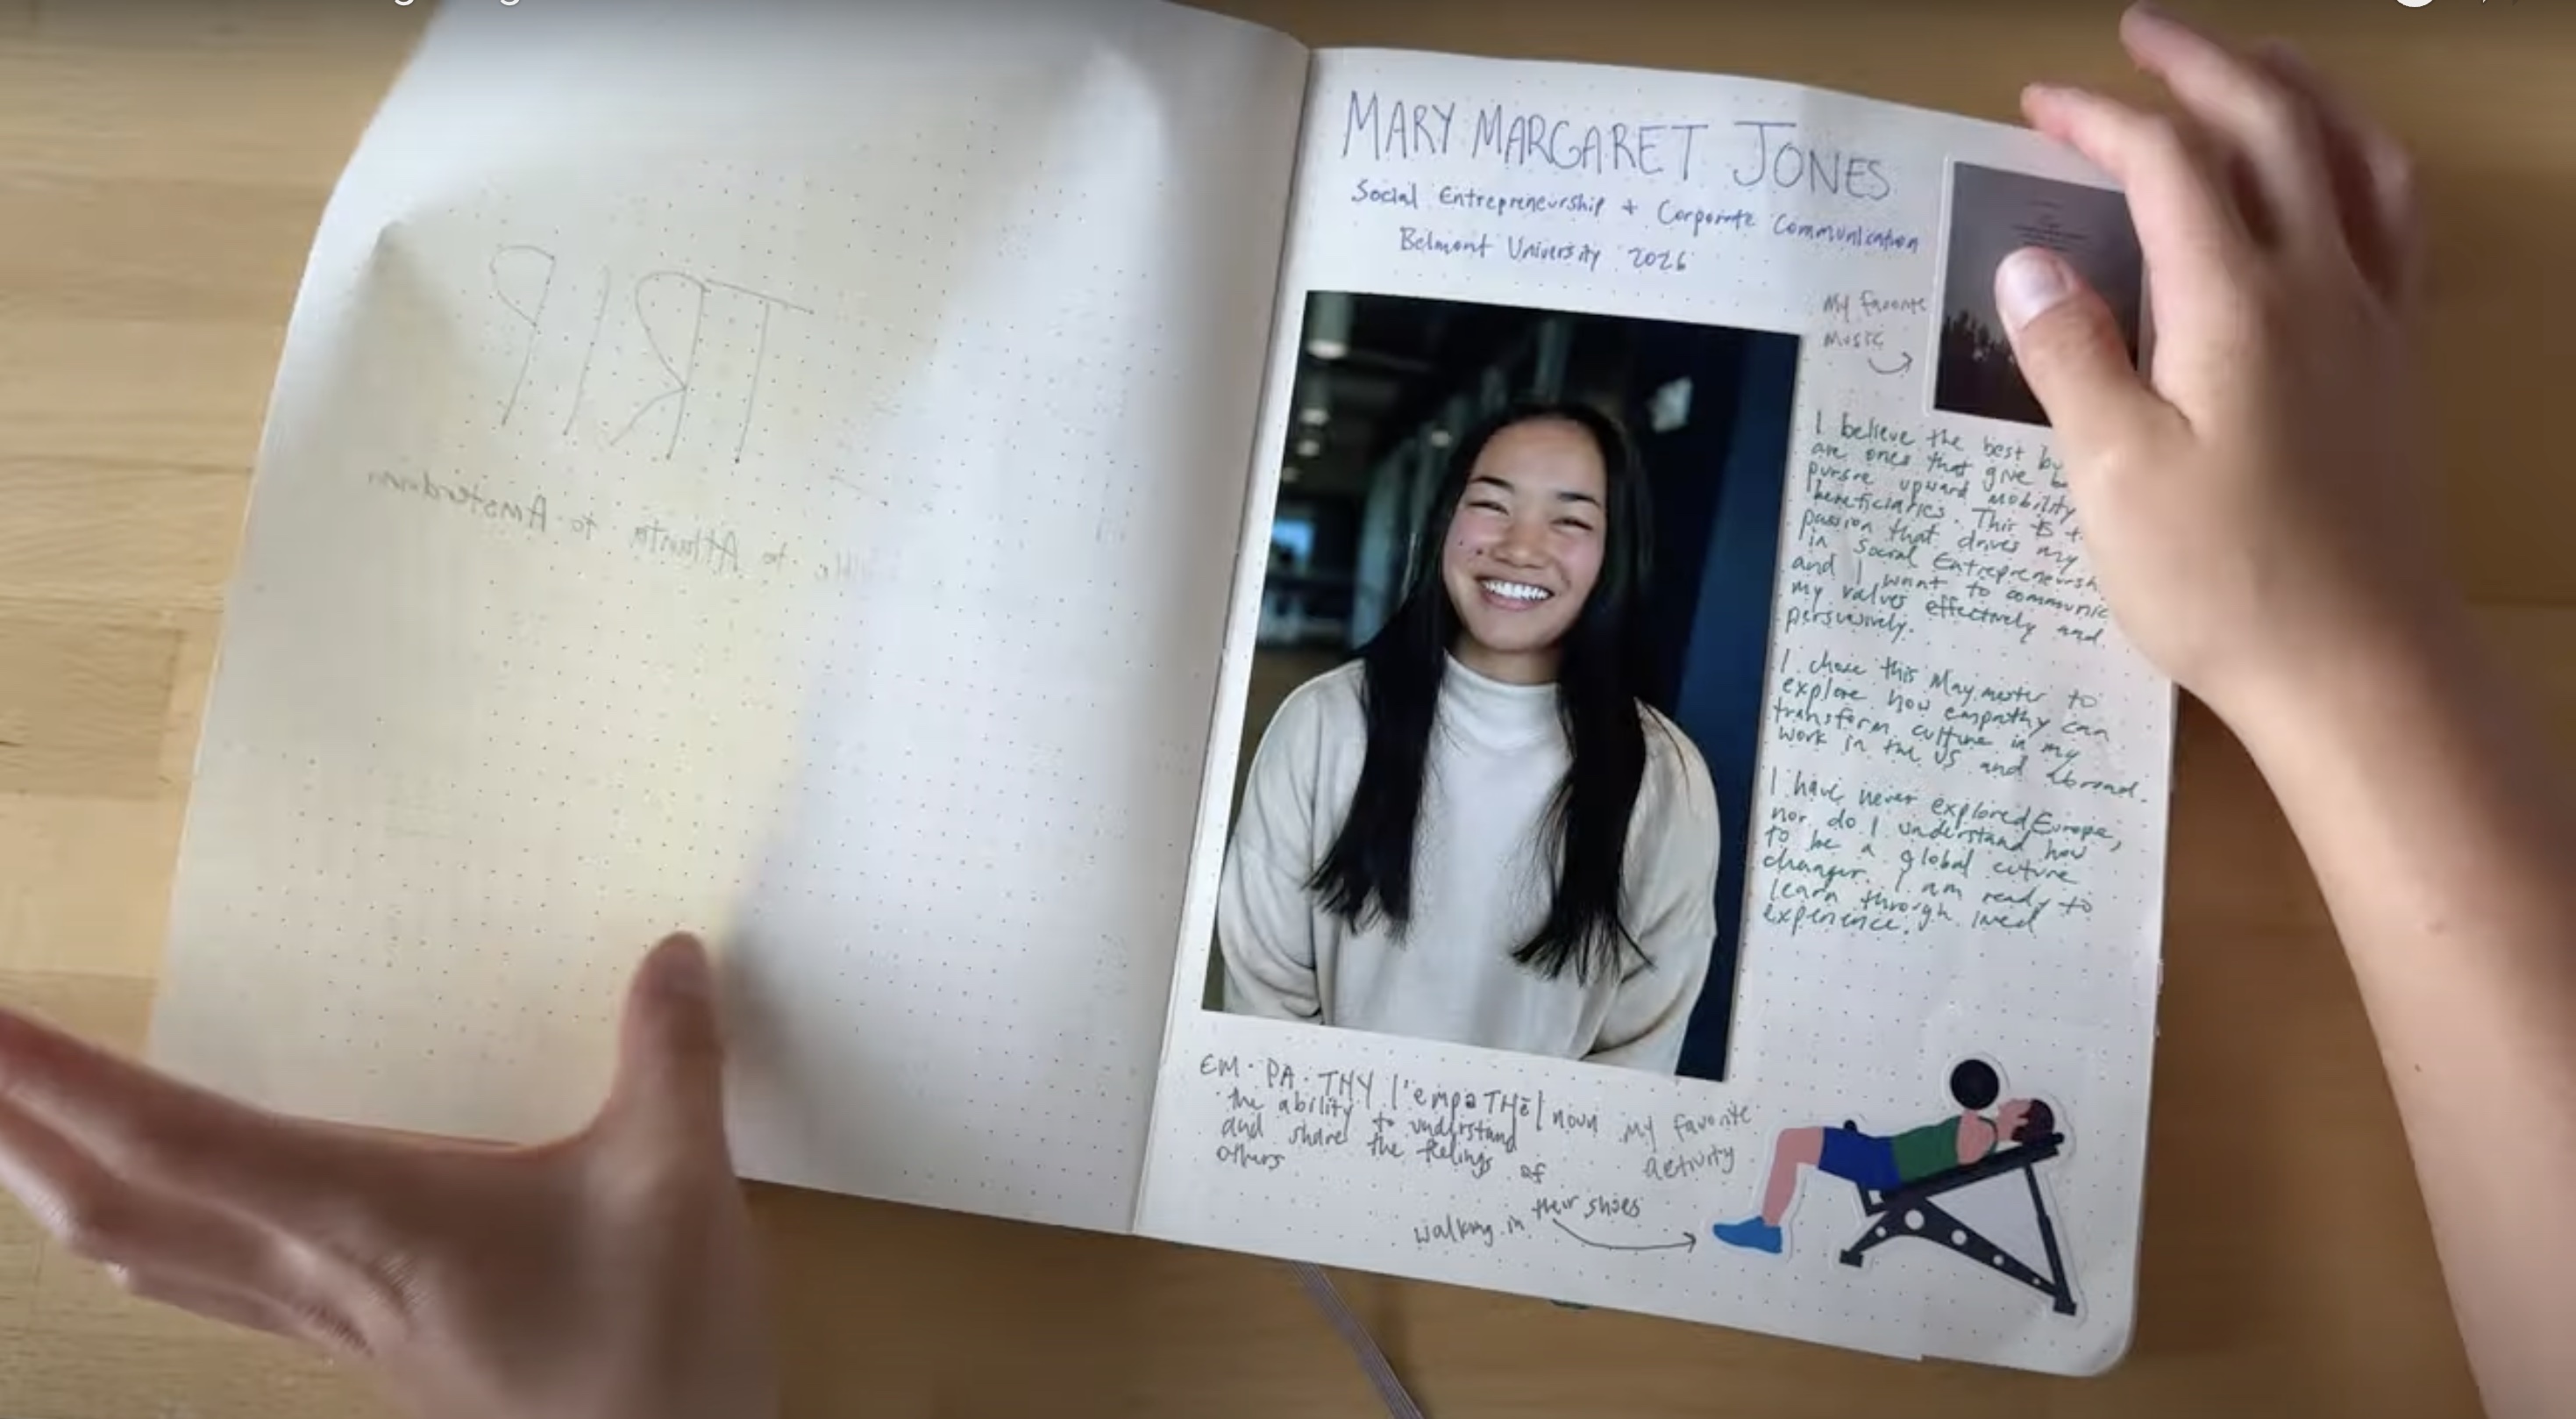 TRIP
to Atlanta to Amsterdam
MARY MARGARET JONES
Social Entrepreneurship + Corporate Communication
Belmont University 2026
My favorite
music
I believe the best
are ones that give
pursue upward mobility
beneficiaries. This is
passion that drives my
in Social
and I want to
my values effectively and
persuasively.
I chose this Maymester to
explore how empathy can
transform culture in my
work in the US and abroad.
I have never explored Europe,
nor do I understand how
to be a global cuture
changer. I am ready to
learn through lived
experience.
EM·PA·THY |'empəTHē| noun
the ability to understand
and share the feelings of
others
my favorite
activity
walking in their shoes